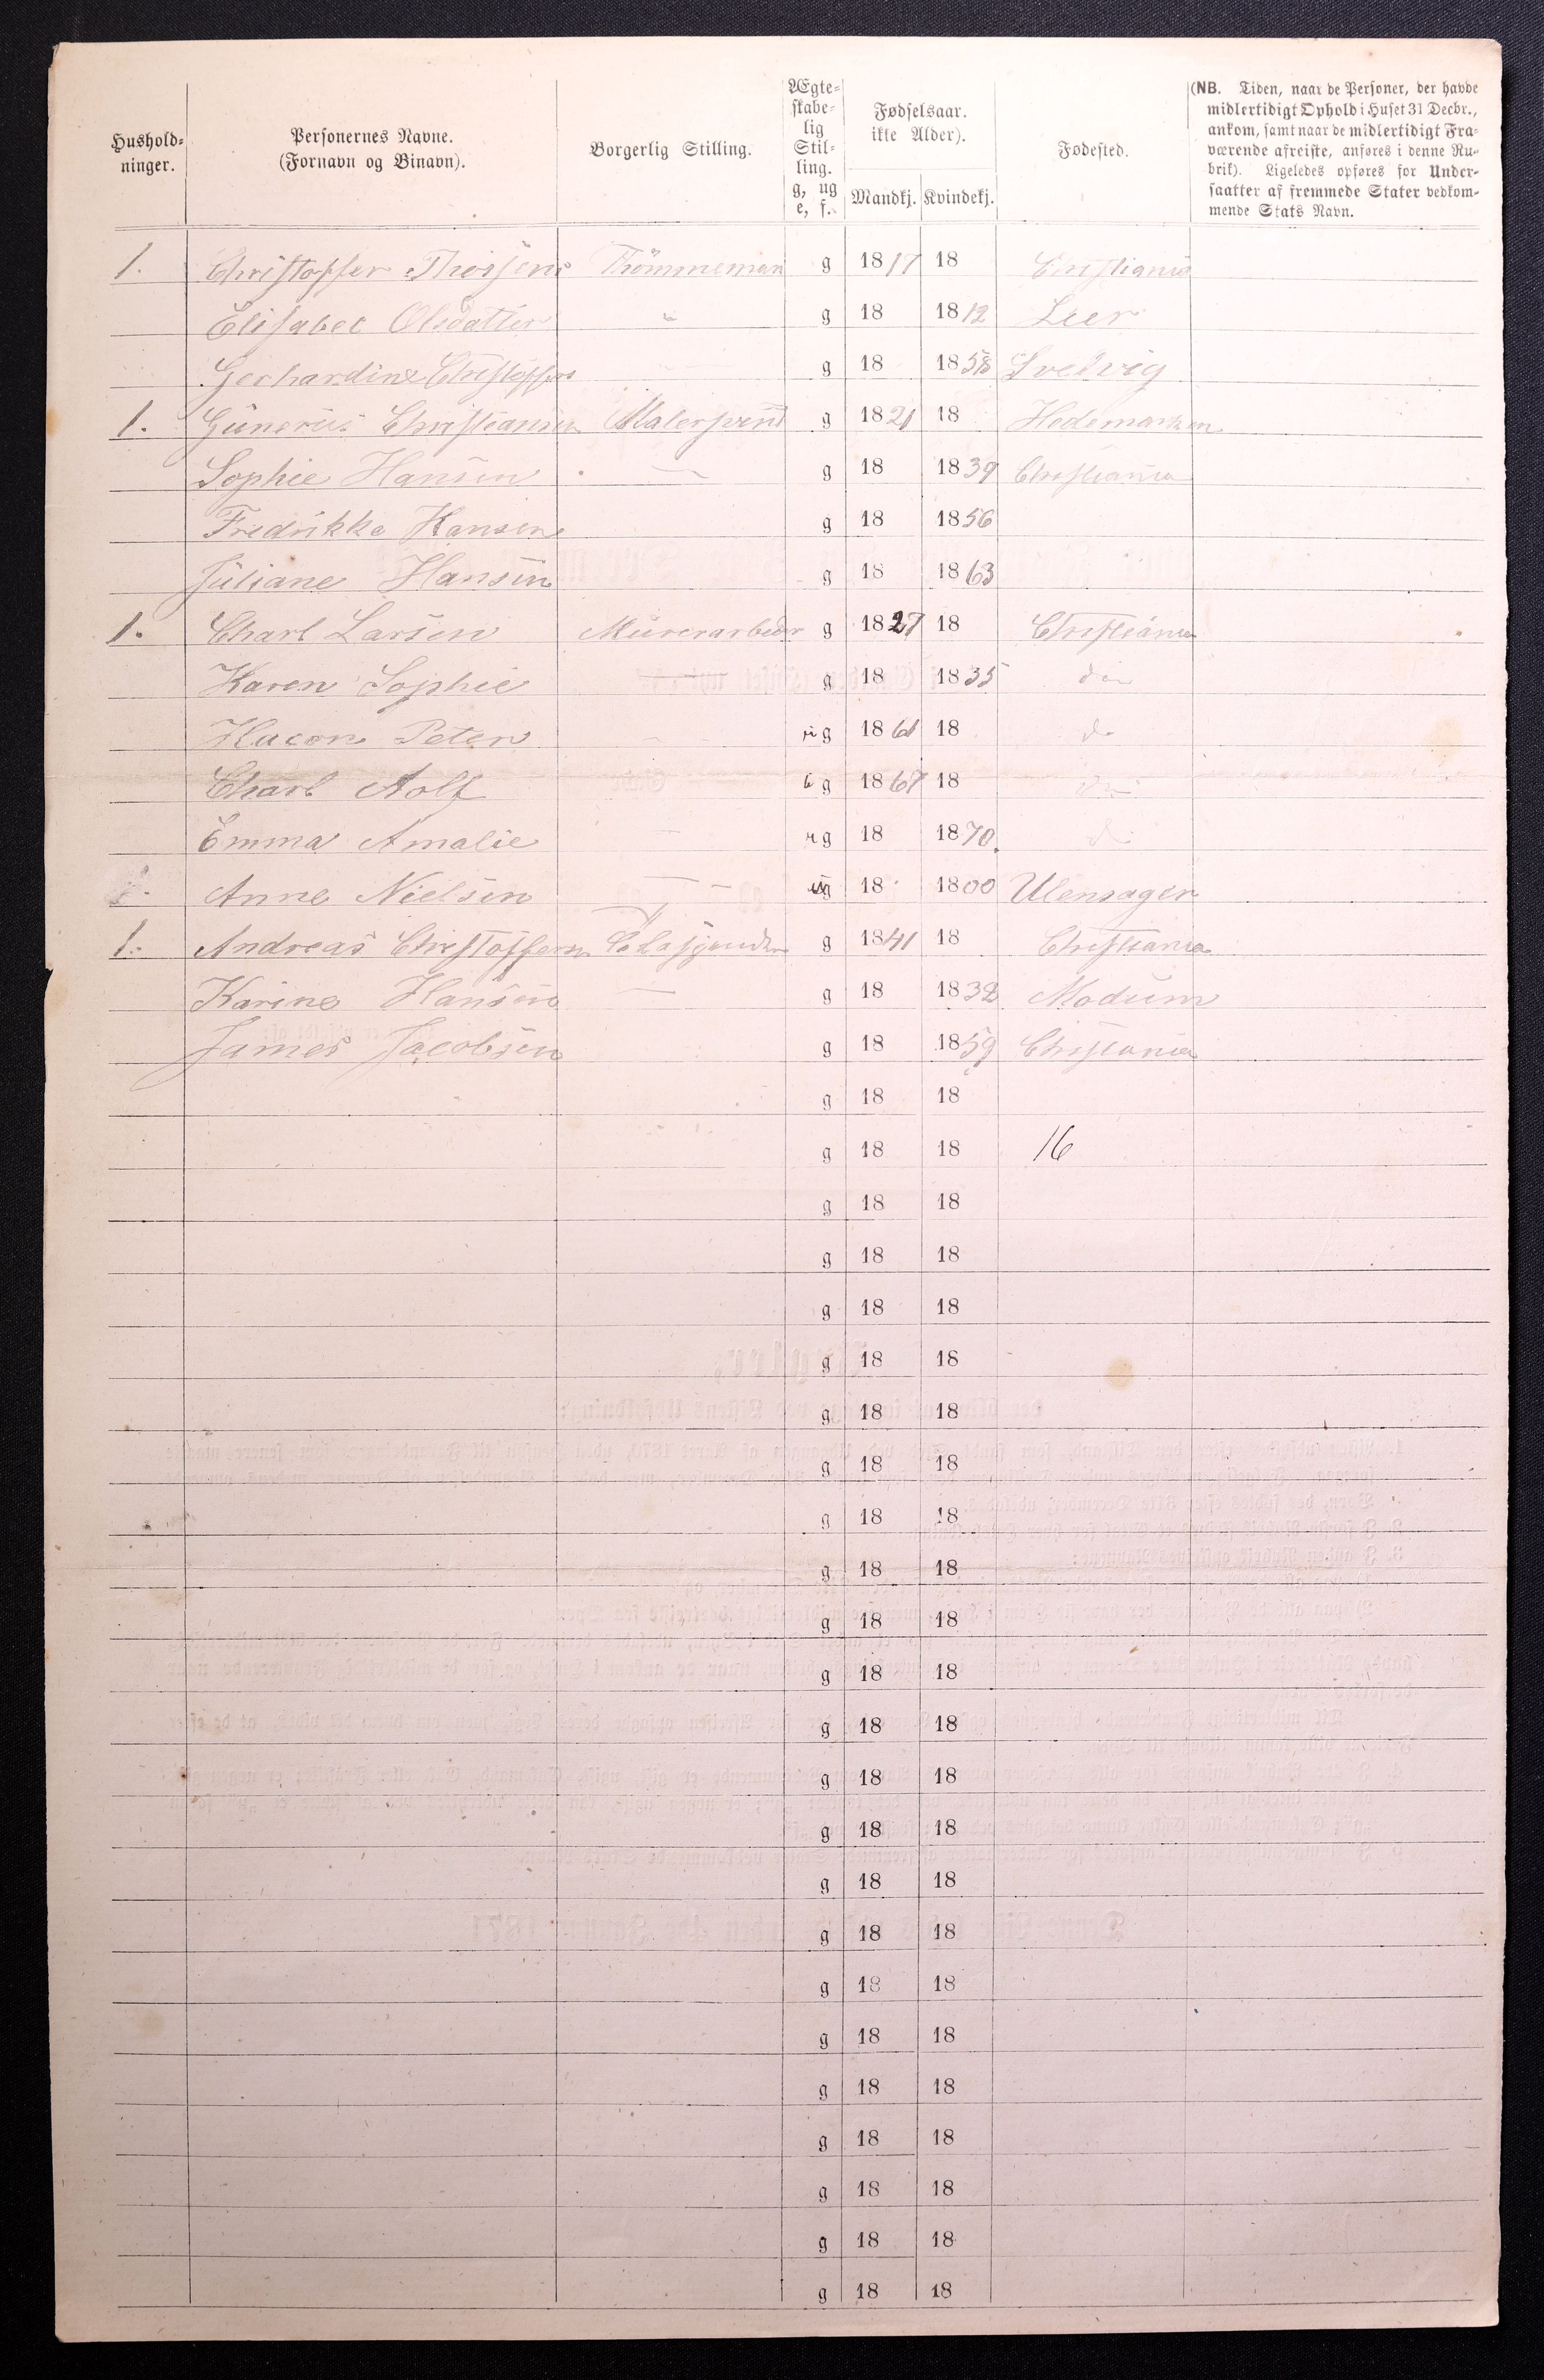 Hushold-
ninger.
Personernes Navne.
(Fornavn og Binavn).
Borgerlig Stilling.
Ægte-
skabe-
lig
Stil-
ling.
g, ug
e, f.
Fødselsaar.
ikke Alder).
Mandkj. Kvindekj.
Fødested.
(NB. Tiden, naar de Personer, der havde
midlertidigt Ophold i Huset 31 Decbr.,
ankom, samt naar de midlertidigt Fra-
værende afreiste, anføres i denne Ru-
brik). Ligeledes opføres for Under-
saatter af fremmede Stater vedkom-
mende Stats Navn.
1. Christopher Thorsens Thömmeman g 1817 18 Christiania
Elisabet Olsdatter g 18 1812 Leer
Gerhardine Christoffers g 18 1858 Svelvig
1. Günerüs Christiansen Malersvend g 1821 18 Hedemarken
Sophie Hansen — g 18 1839 Christiania
Fredrikke Hansen g 18 1856
Jüliane Hansen g 18 1863
1. Charl Larsen Mürerarbeidr g 1827 18 Christiania
Karen Sophie g 18 1835 do
Hacon Peter g 1861 18 do
Charl Aolf g 1867 18
Emma Amalie g 18 1870
Anne Nielsen ug 18 1800 Ulensager
1. Andreas Christoffersen g 1841 18 Christiania
Karine Hansen — g 18 1832 Modum
James Jacobsen g 18 1859 Christiania
g 18 18
g 18 18 16
g 18 18
g 18 18
g 18 18
g 18 18
g 18 18
g 18 18
g 18 18
g 18 18
g 18 18
g 18 18
g 18 18
g 18 18
g 18 18
g 18 18
g 18 18
g 18 18
g 18 18
g 18 18
g 18 18
g 18 18
g 18 18
g 18 18